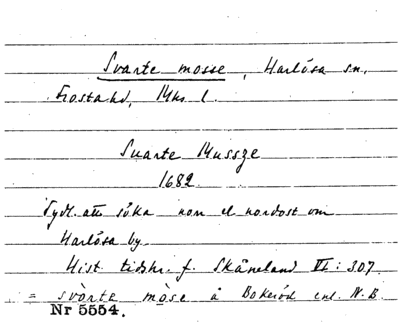 Svarte mosse, Harlösa sn,
Frosta hd, Mhs l.
Suarte Mussze
1682.
Tydl. att söka norr el nordost om
Harlösa by
Hist tidskr. f. Skåneland VI: 307
= svòrte mòse å Bokeröd enl. N.B.
Nr 5554.